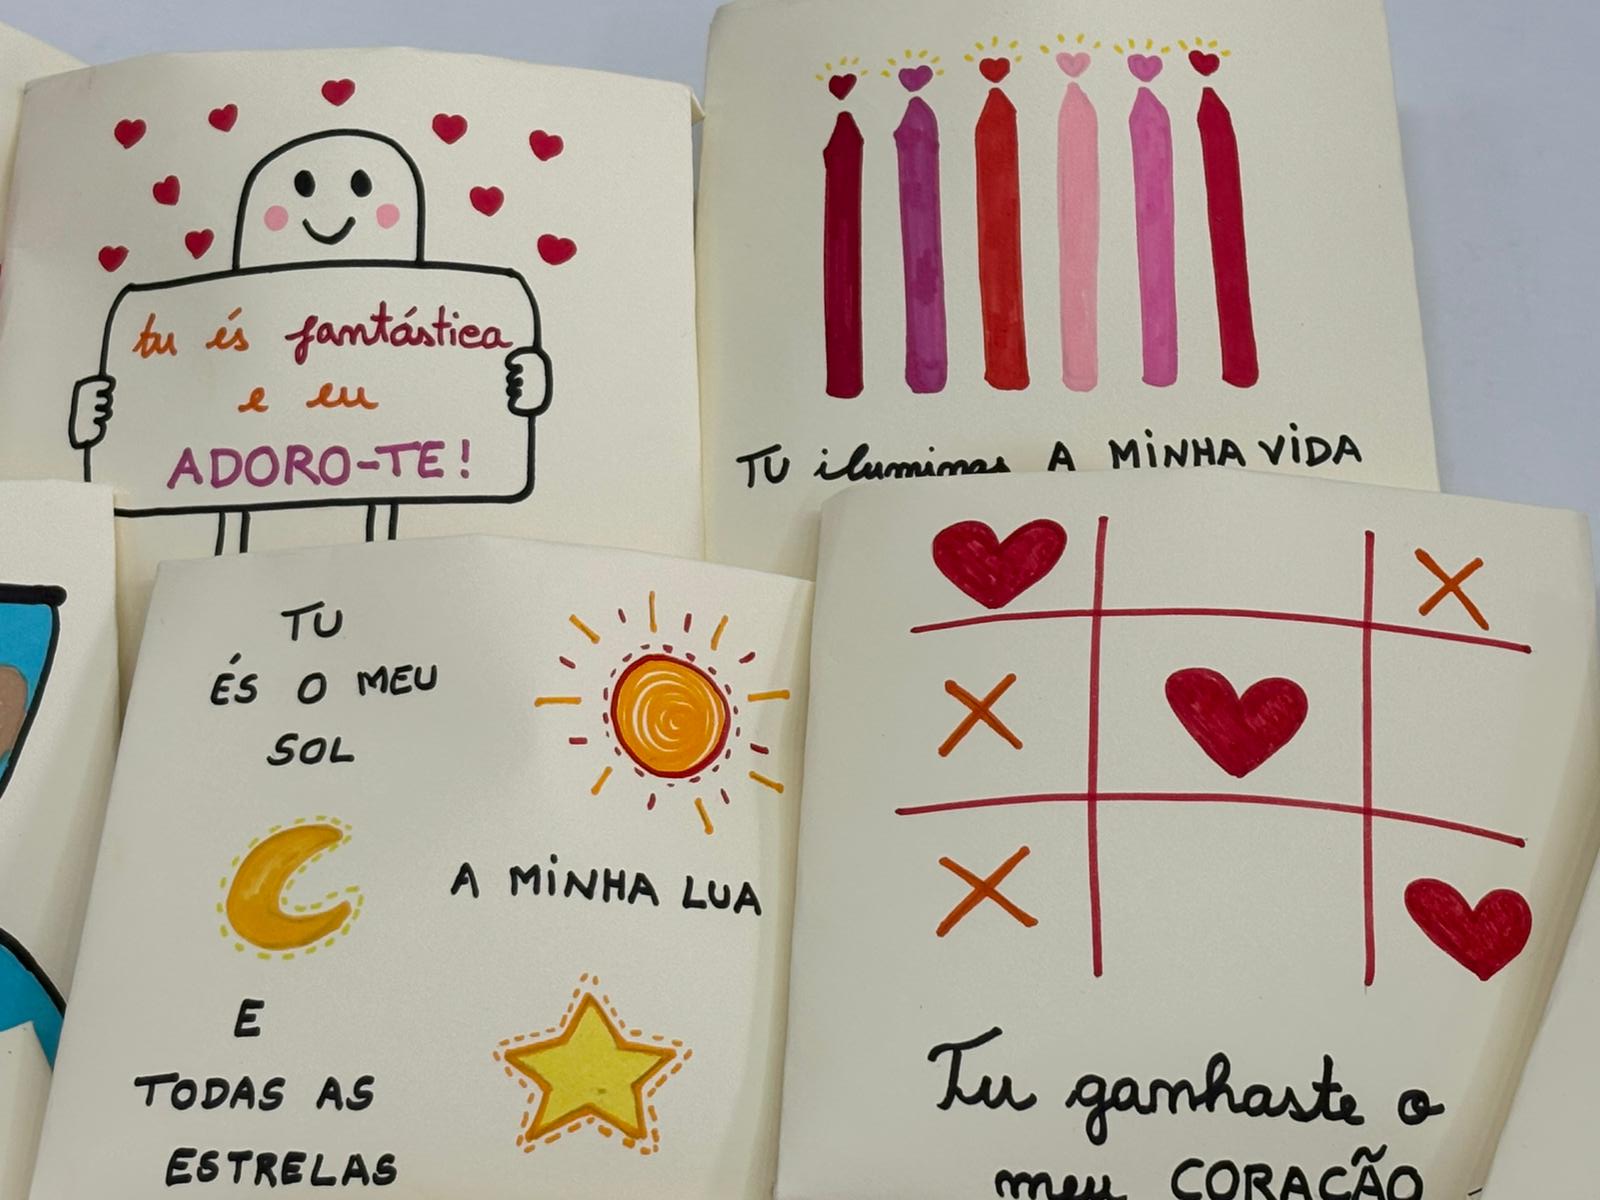 tu és fantástica
e eu
ADORO-TE!
TU iluminas A MINHA VIDA
TU
ÉS O MEU
SOL
A MINHA LUA
E
TODAS AS
ESTRELAS
Tu ganhaste o
meu CORAÇÃO